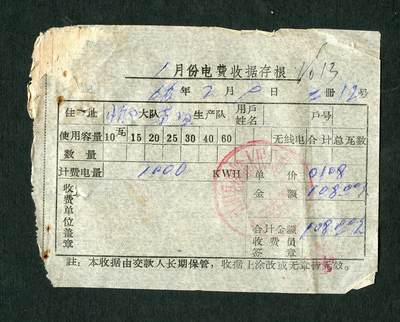 1月份电费收据存根 No 13
年2月 日 册12号
住址 大队 生产队 用户姓名 户号
使用容量 10瓦 15 20 25 30 40 60 无线电合计总瓦数
数量
计费电量 1000 KWH 单价 0108
收费单位盖章 金额 108.00
合计金额 108.00
收费员签章
註:本收据由交款人长期保管,收据上涂改或无章特无效。